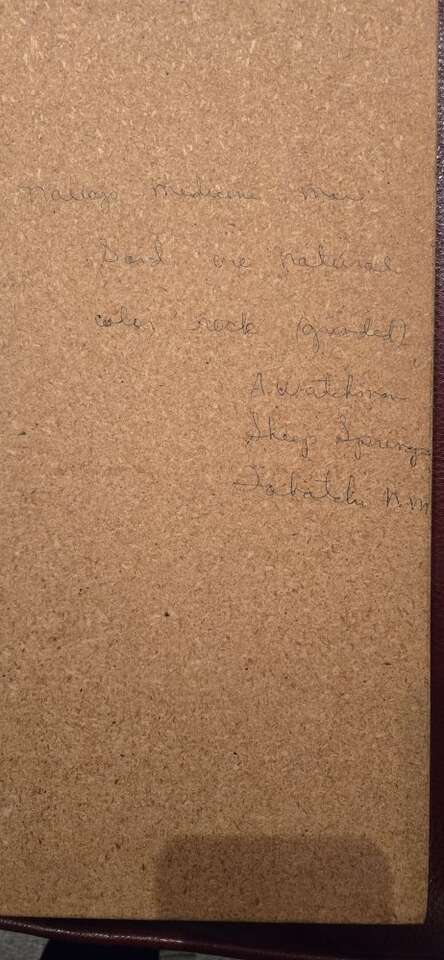 Navajo Medicine Man
Sand are natural
color rock (grinded)
A. Watchman
Sheep Springs
Tohatchi N.M